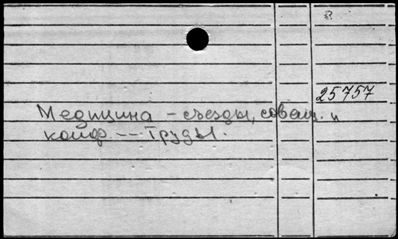 25757
Медицина - съезды, совещ. и
конф. -- Труды.